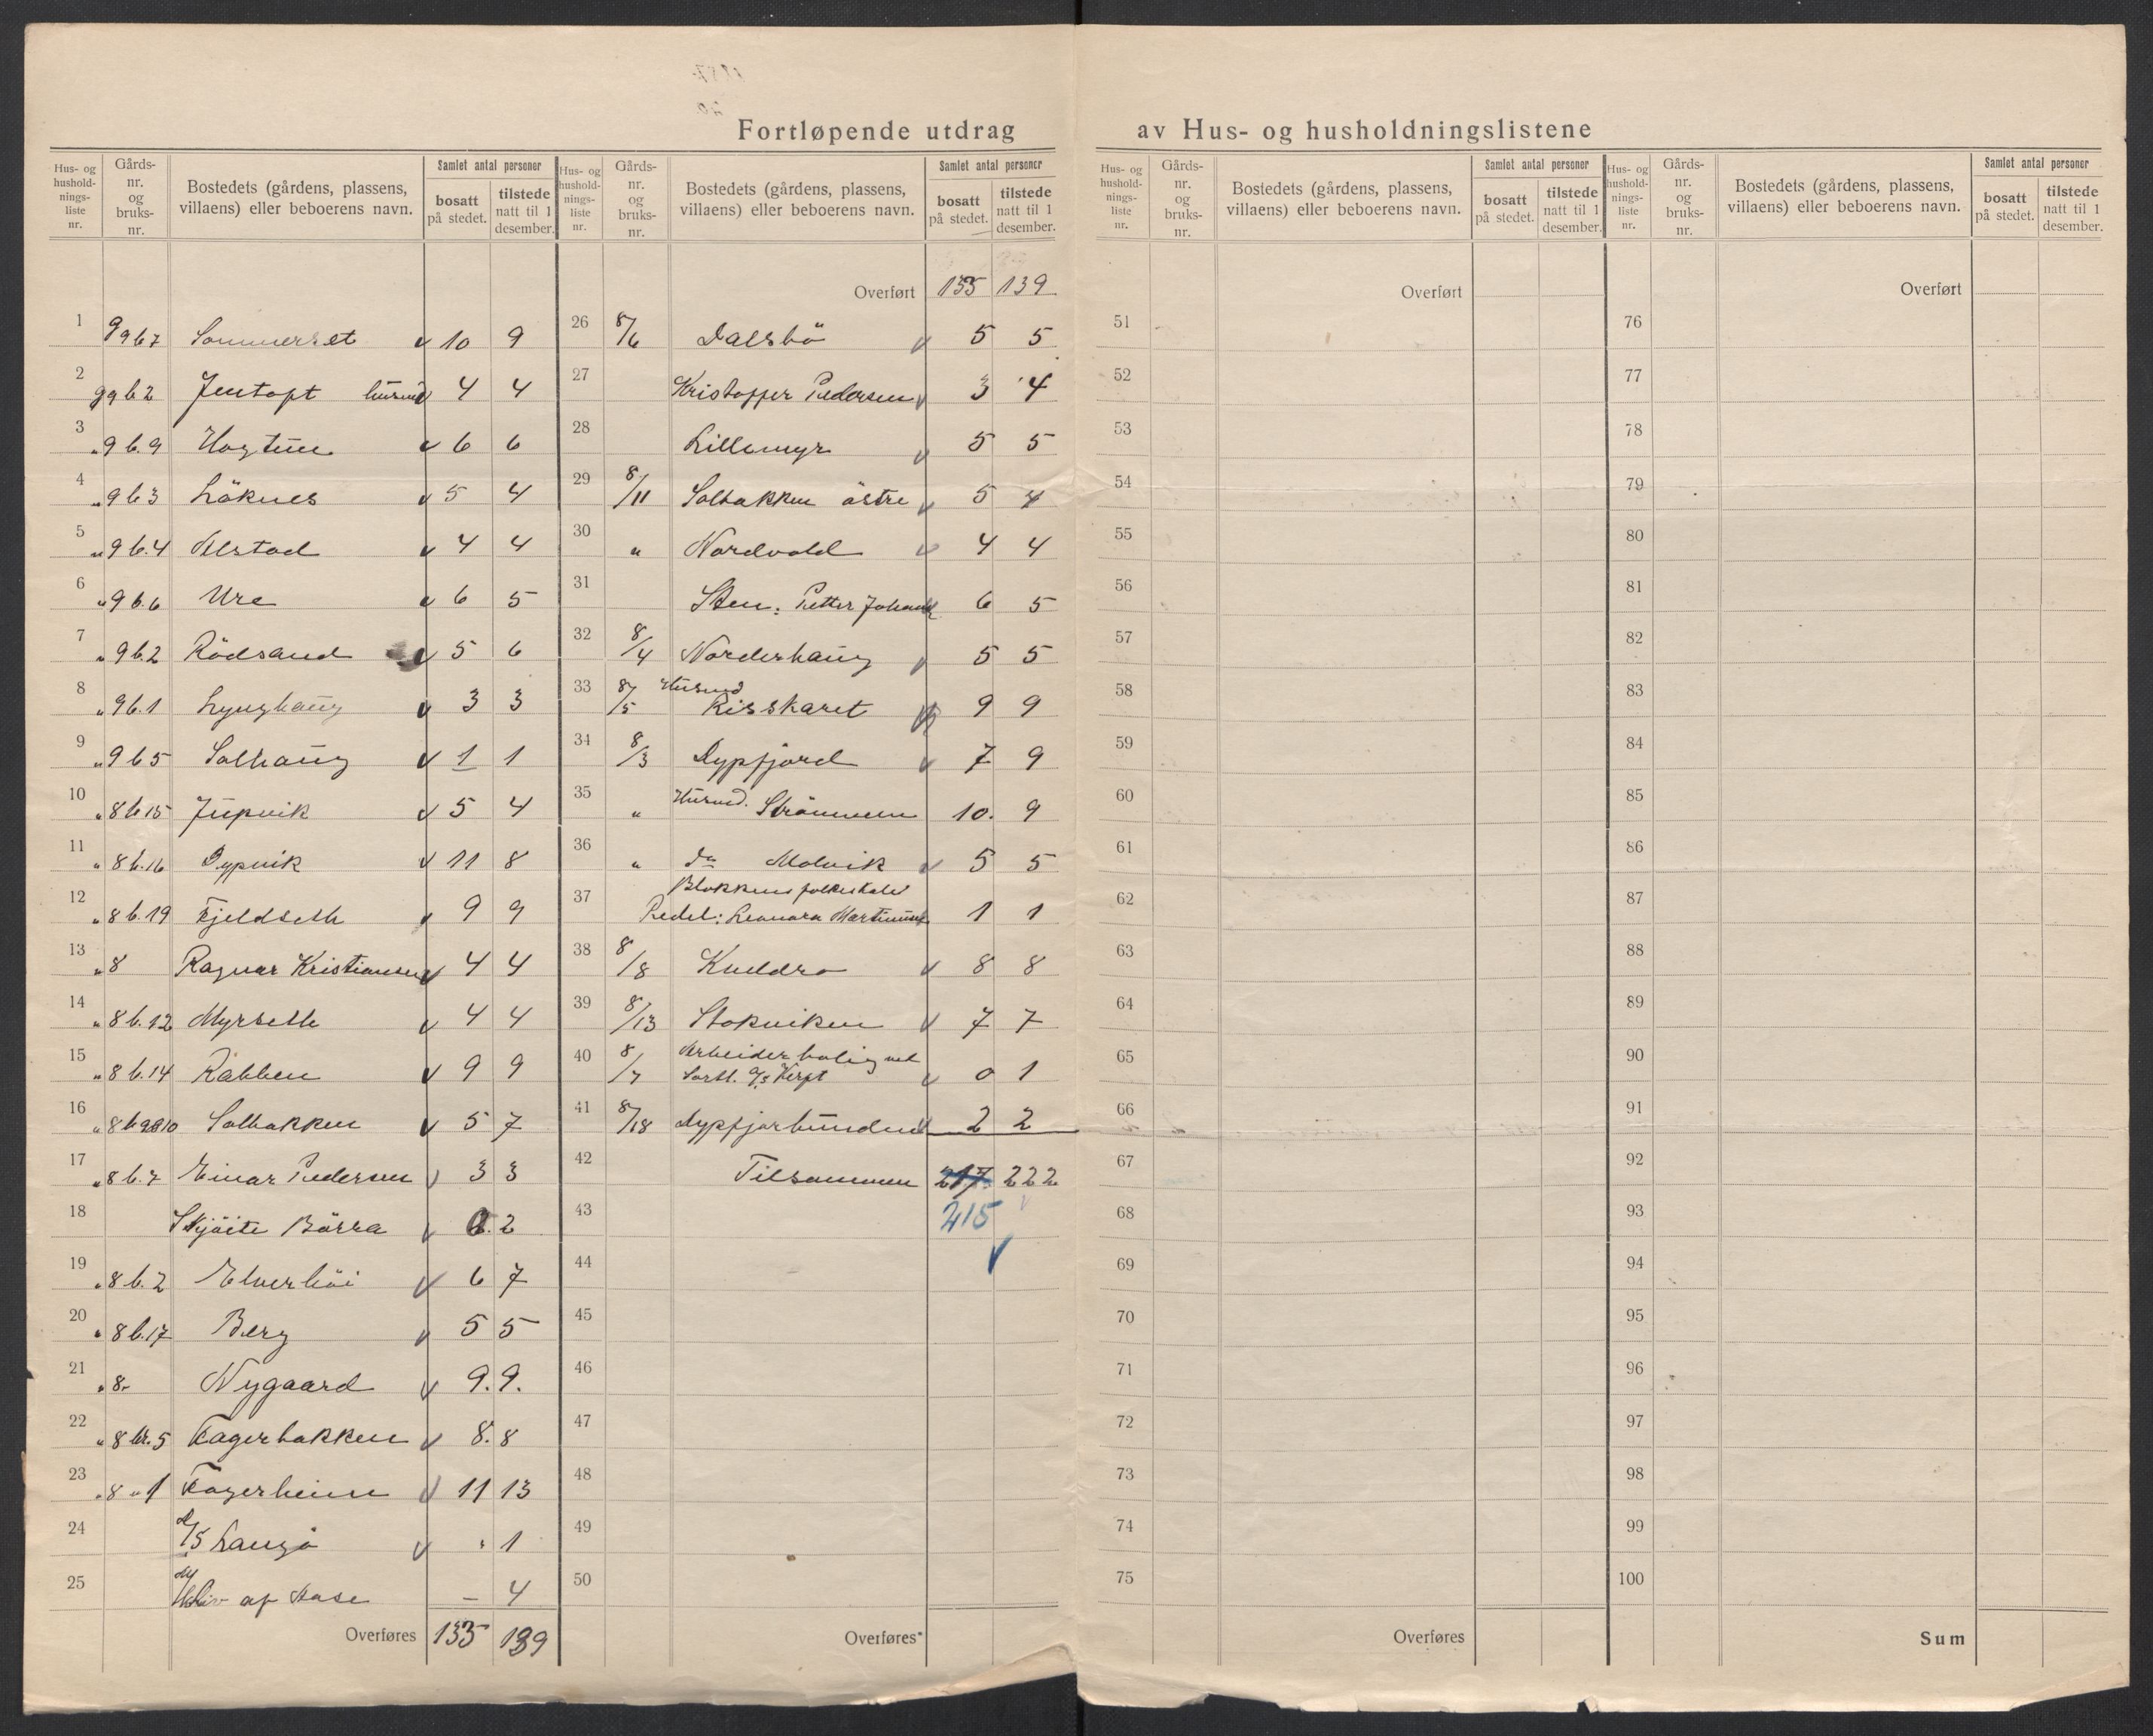 Fortløpende utdrag av Hus- og husholdningslistene
Hus- og hushold-nings-liste nr. Gårds-nr. og bruks-nr. Bostedets (gårdens, plassens, villaens) eller beboerens navn. Samlet antal personer bosatt på stedet. tilstede natt til 1 desember.
1 g 9 b 7 Sommerset v 10 9
2 g 9 b 2 Jentoft husmd v 4 4
3 „ 9 b. 9 Haugtun v 6 6
4 „ 9 b 3 Löknes v 5 4
5 „ 9 b. 4 Alstad v 4 4
6 „ 9 b. 6 Ure v 6 5
7 „ 9 b. 2 Rödsand v 5 6
8 „ 9 b. 1 Lynghaug v 3 3
9 „ 9 b 5 Solhaug v 1 1
10 „ 8 b 15 Jupvik v 5 4
11 „ 8 b. 16 Dypvik v 11 8
12 „ 8 b. 19 Fjeldseth v 9 9
13 „ 8 Ragnar Kristiansen v 4 4
14 „ 8 b. 12 Myrseth v 4 4
15 „ 8 b. 14 Rabben v 9 9
16 „ 8 b 9&10 Solbakken v 5 7
17 „ 8 b. 7 Einar Pedersen v 3 3
18 Skjöite Börra v 0. 2
19 „ 8 b. 2 Elverhöi v 6 7
20 „ 8 b. 17 Berg v 5 5
21 „ 8 Nygaard v 9. 9.
22 „ 8 br. 5 Fagerbakken v 8. 8
23 „ 8 „ 1 Fagerheim v 11 13
24 D/S Langö v 1
25 af Hase – 4
Overføres 133 139
Hus- og hushold-nings-liste nr. Gårds-nr. og bruks-nr. Bostedets (gårdens, plassens, villaens) eller beboerens navn. Samlet antal personer bosatt på stedet. tilstede natt til 1 desember.
Overført 133 139
26 8/6 Dalsbö v 5 5
27 Kristoffer Pedersen v 3 4
28 Lillemyr v 5 5
29 8/11 Solbakken östre v 5 4
30 „ Nordvold v 4 4
31 Sten: Petter Johans 6 5
32 8/4 Norderhaug v 5 5
33 8/5 Husmd Risskaret v 9 9
34 8/3 Dypfjord v 7 9
35 „ Husmd. Strömmen 10. 9
36 „ do Molvik v 5 5
37 Blokkens folkeskole
Pedel: Leonora Martinus 1 1
38 8/8 Kneddra v 8 8
39 8/13 Stokviken v 7 7
40 8/7 Arbeiderbolig ved
Sortl. A/S v 0 1
41 8/18 Dypfjorbunden v 2 2
42 Tilsammen 217 222
43 215 v
44
45
46
47
48
49
50
Overføres
Hus- og hushold-nings-liste nr. Gårds-nr. og bruks-nr. Bostedets (gårdens, plassens, villaens) eller beboerens navn. Samlet antal personer bosatt på stedet. tilstede natt til 1 desember.
Overført
51
52
53
54
55
56
57
58
59
60
61
62
63
64
65
66
67
68
69
70
71
72
73
74
75
Overføres
Hus- og hushold-nings-liste nr. Gårds-nr. og bruks-nr. Bostedets (gårdens, plassens, villaens) eller beboerens navn. Samlet antal personer bosatt på stedet. tilstede natt til 1 desember.
Overført
76
77
78
79
80
81
82
83
84
85
86
87
88
89
90
91
92
93
94
95
96
97
98
99
100
Sum